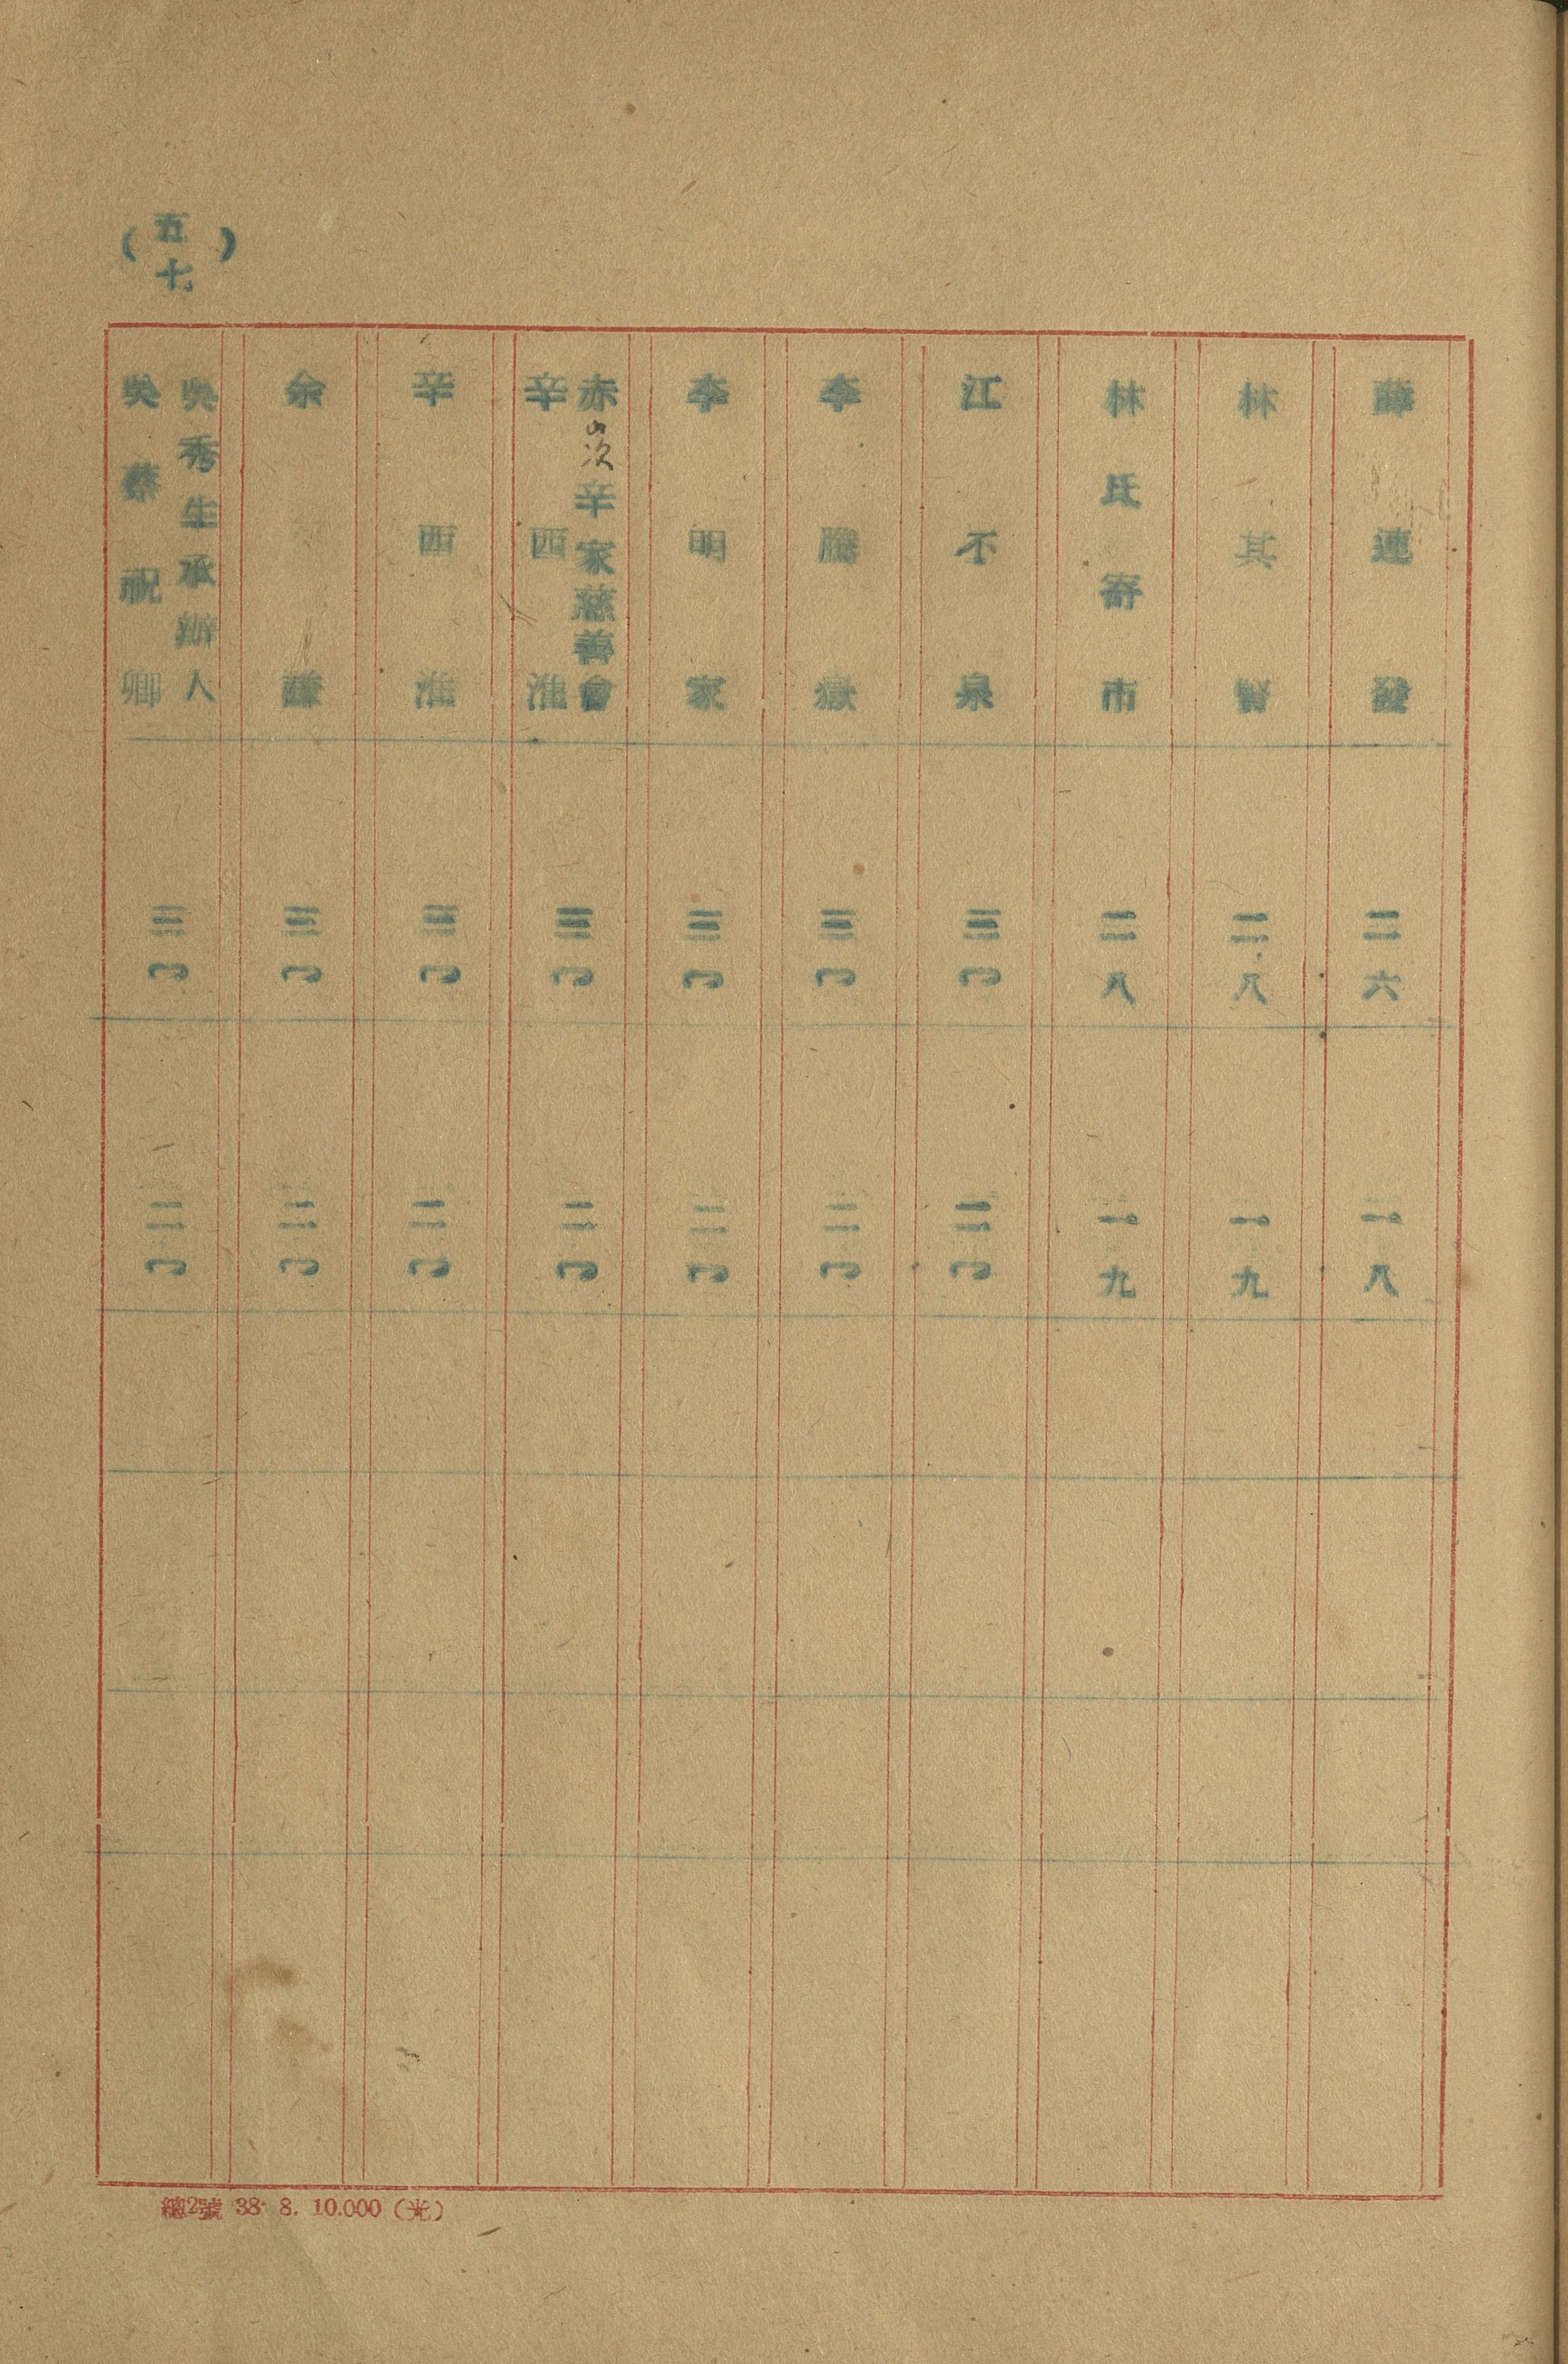 （五七）
薛連發 二六 一八
林其賢 二八 一九
林氏寄市 二八 一九
江不泉 三〇 二〇
李騰嶽 三〇 二〇
李明家 三〇 二〇
赤崁辛家慈善會
辛西淮 三〇 二〇
辛西淮 三〇 二〇
余謙 三〇 二〇
吳秀生承辦人
吳蔡祝卿 三〇 二〇
總2號 38. 8. 10.000（光）